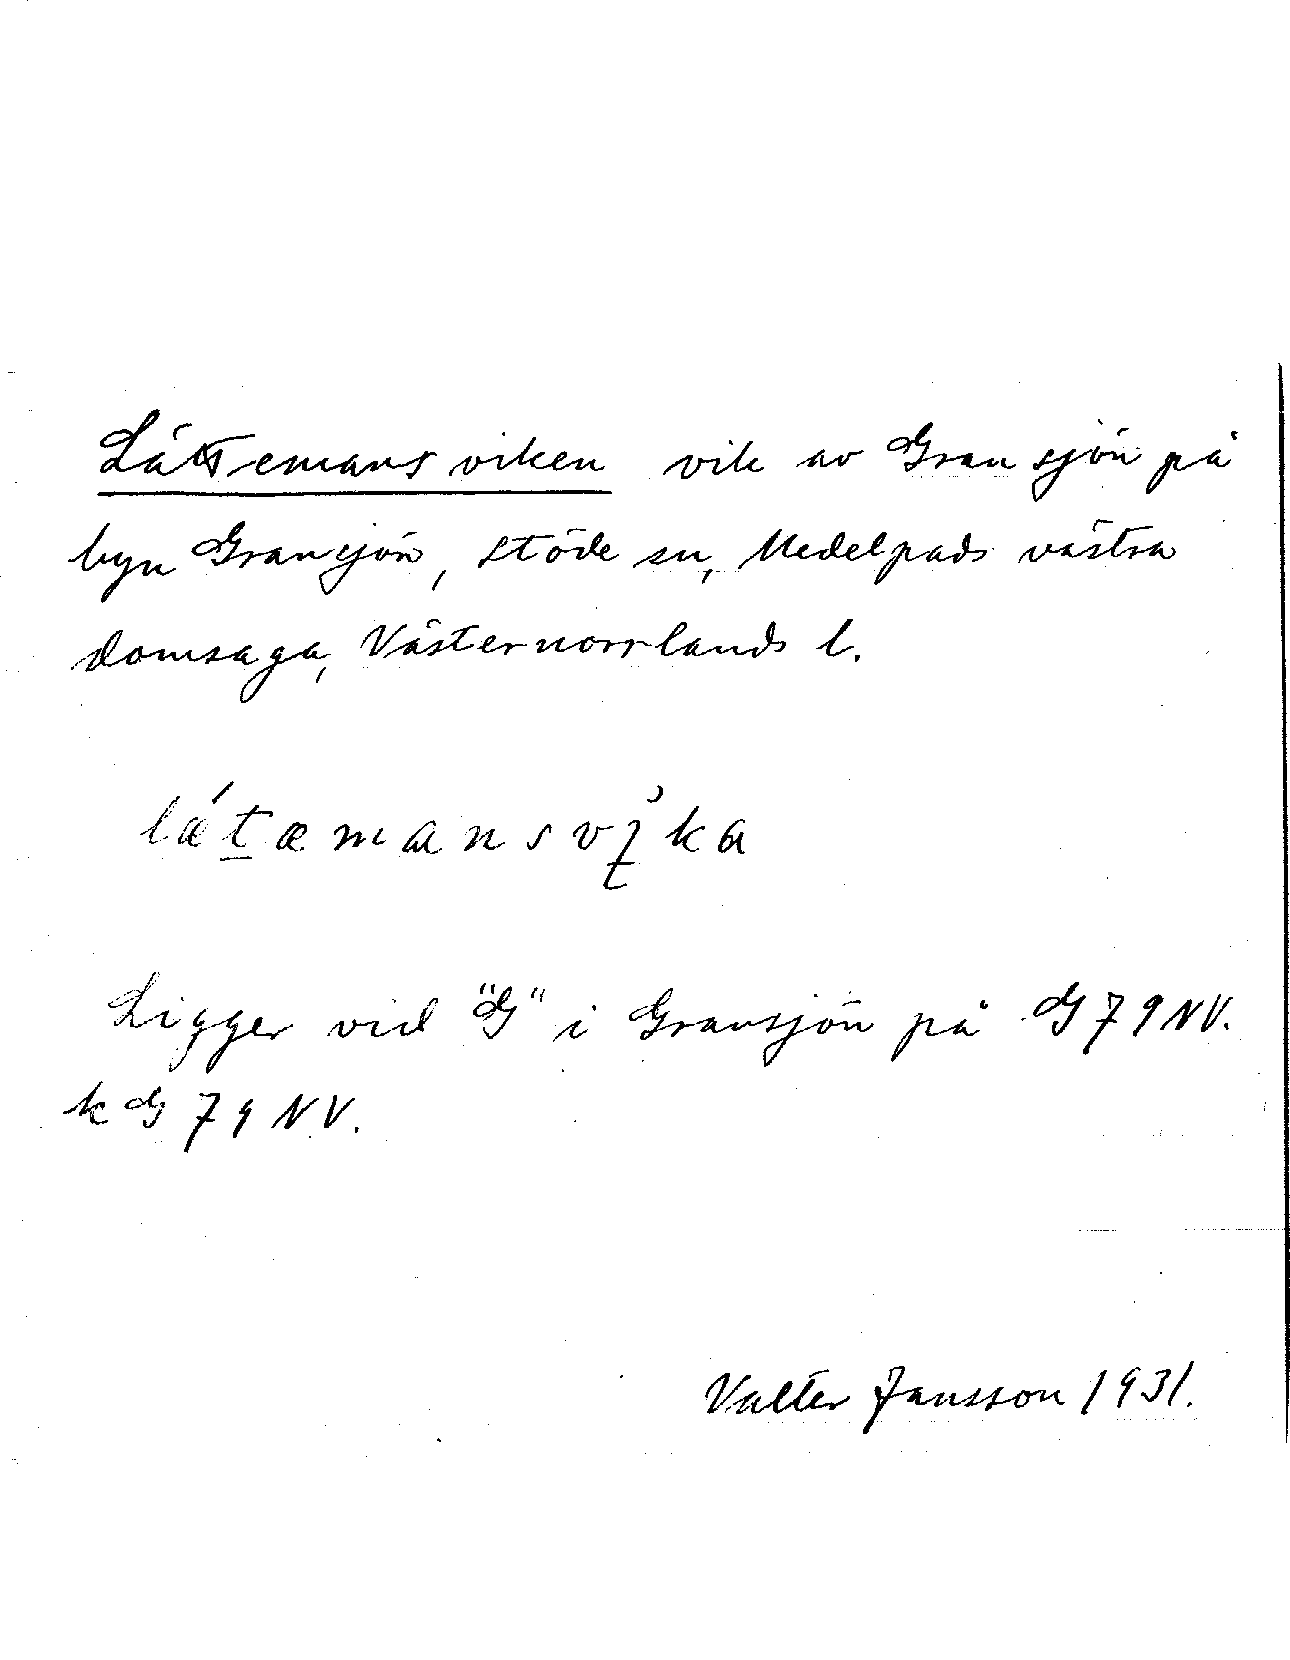 Lättemansviken vik av Gransjön på
byn Gransjön, Stöde sn, Medelpads västra
domsaga, Västernorrlands l.
lǽt̲æmansvỉ̢ka
Ligger vid "G" i Gransjön på G79NV.
k G79NV.
Valter Jansson 1931.